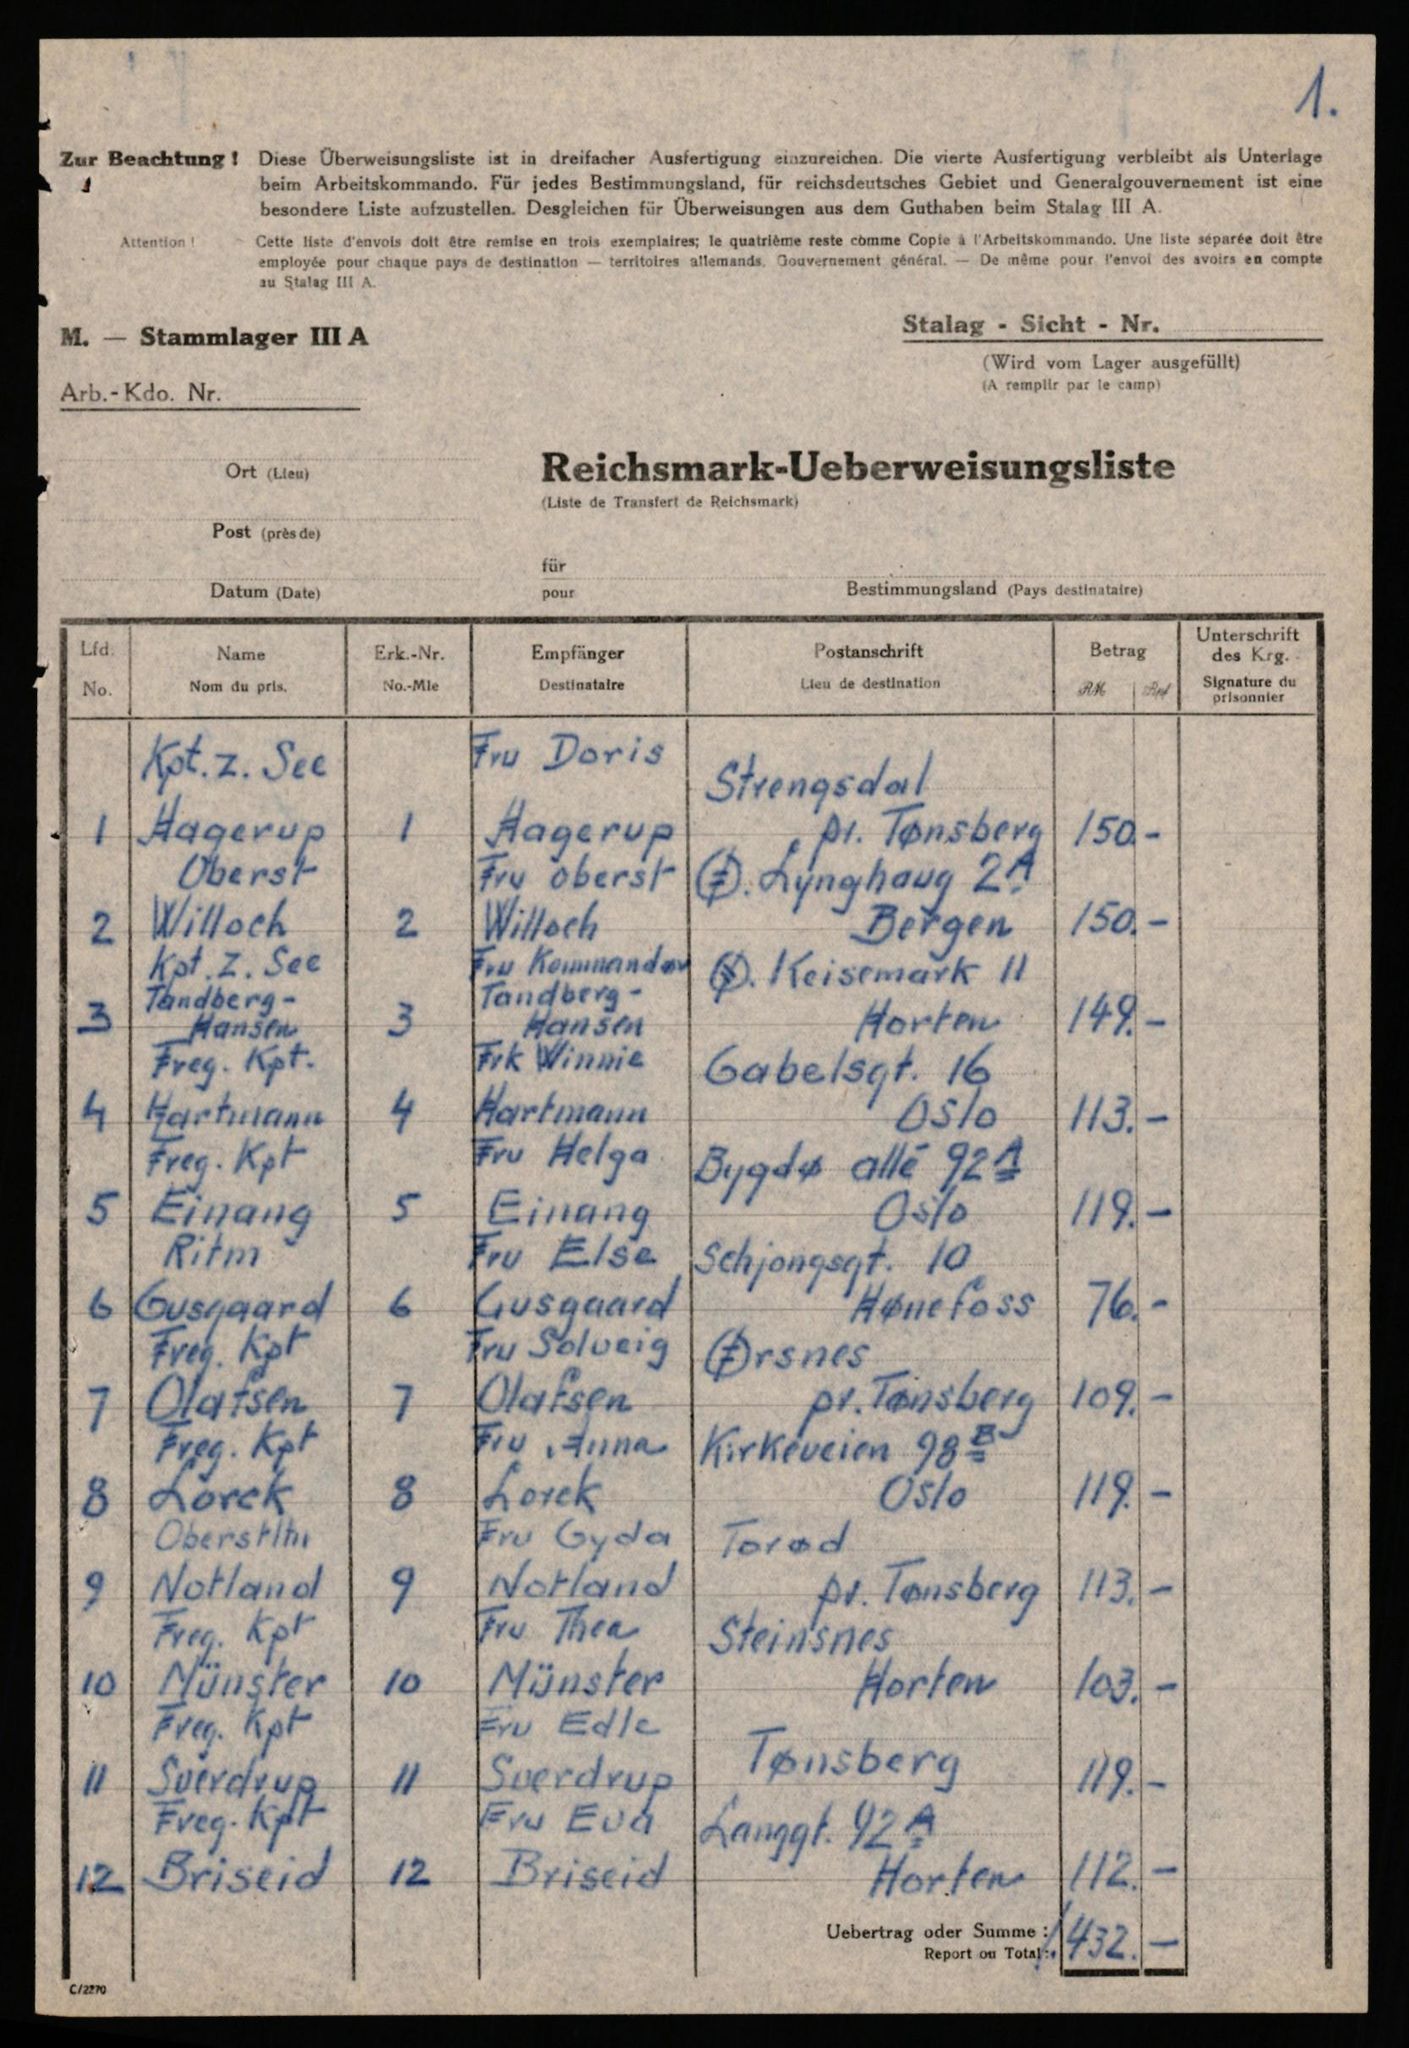 1.
Zur Beachtung! Diese Überweisungsliste ist in dreifacher Ausfertigung einzureichen. Die vierte Ausfertigung verbleibt als Unterlage
beim Arbeitskommando. Für jedes Bestimmungsland, für reichsdeutsches Gebiet und Generalgouvernement ist eine
besondere Liste aufzustellen. Desgleichen für Überweisungen aus dem Guthaben beim Stalag III A.
Attention! Cette liste d'envois doit être remise en trois exemplaires; le quatrième reste comme Copie à l'Arbeitskommando. Une liste séparée doit être
employée pour chaque pays de destination — territoires allemands. Gouvernement général. — De même pour l'envoi des avoirs en compte
au Stalag III A.
M. — Stammlager III A
Stalag - Sicht - Nr.
(Wird vom Lager ausgefüllt)
(A remplir par le camp)
Arb.-Kdo. Nr.
Ort (Lieu)
Reichsmark-Ueberweisungsliste
(Liste de Transfert de Reichsmark)
Post (près de)
für
Datum (Date) pour Bestimmungsland (Pays destinataire)
Lfd. Name Erk.-Nr. Empfänger Postanschrift Betrag Unterschrift des Krg.
No. Nom du pris. No.-Mle Destinataire Lieu de destination RM Rpf Signature du prisonnier
Kpt. z. See Fru Doris Strengsdal
1 Hagerup 1 Hagerup pr. Tønsberg 150.-
Oberst Fru oberst Ø. Lynghaug 2A
2 Willoch 2 Willoch Bergen 150.-
Kpt. z. See Fru Kommandør Ø. Keisemark 11
Tandberg- Tandberg-
3 Hansen 3 Hansen Horten 149.-
Freg. Kpt. Frk Winnie Gabelsgt. 16
4 Hartmann 4 Hartmann Oslo 113.-
Freg. Kpt Fru Helga Bygdø allé 92A
5 Einang 5 Einang Oslo 119.-
Ritm Fru Else Schjongsgt. 10
6 Gusgaard 6 Gusgaard Hønefoss 76.-
Freg. Kpt Fru Solveig Ørsnes
7 Olafsen 7 Olafsen pr. Tønsberg 109.-
Freg. Kpt Fru Anna Kirkeveien 98B
8 Lorck 8 Lorck Oslo 119.-
Oberstltn Fru Gyda Torød
9 Notland 9 Notland pr. Tønsberg 113.-
Freg. Kpt Fru Thea Steinsnes
10 Münster 10 Münster Horten 103.-
Freg. Kpt Fru Edle Tønsberg
11 Sverdrup 11 Sverdrup 119.-
Freg. Kpt Fru Eva Langgt. 92A
12 Briseid 12 Briseid Horten 112.-
Uebertrag oder Summe: 1432.-
Report ou Total:
C/2270